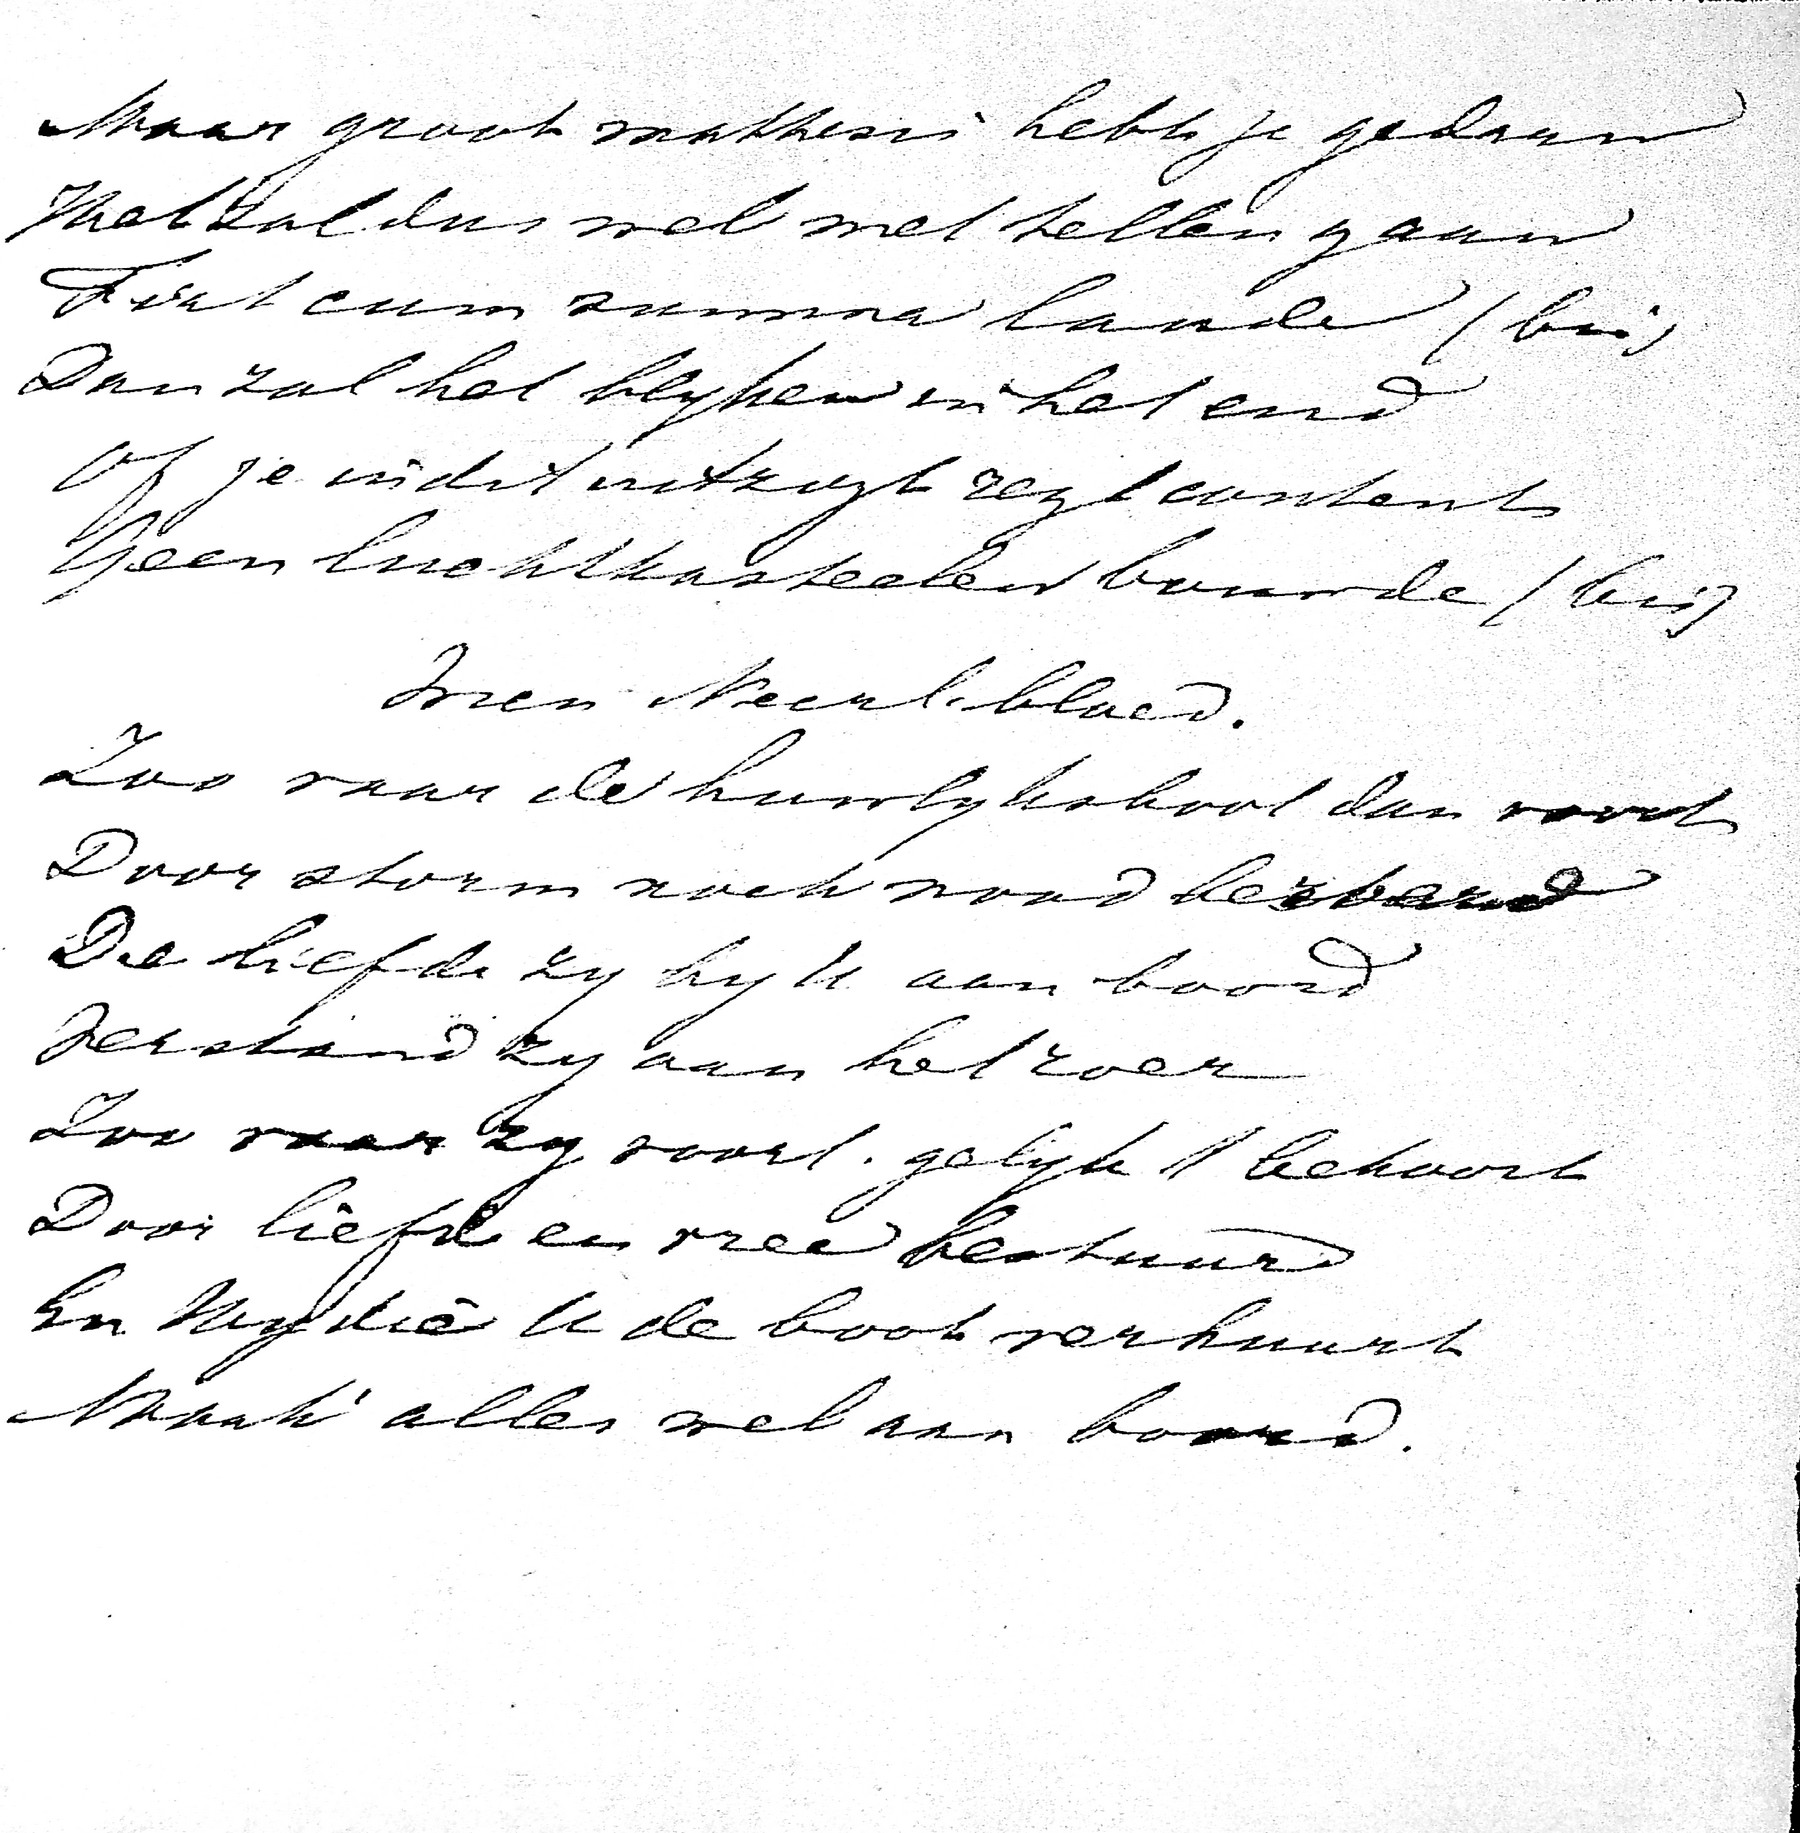 Maar groot mathesis hebt je gedaan
Het zal dus wel met tellen gaan
Fiat cum summa laude (bis)
Dan zal het blyken in het end
Of je in dit uitzigt regt content
Geen luchtkasteelen bouwde (bis)
Wien Neerl. bloed.
Zoo vaar de huwlyksboot dan voort
Door storm noch nood
De liefde zy by U aan boord
Verstand zy aan het roer
Zoo vaar zy voort. gelyk 't behoort
Door liefde en vree bestuurd
En Hy die U de boot verhuurt
Maak' alles wel aan boord.